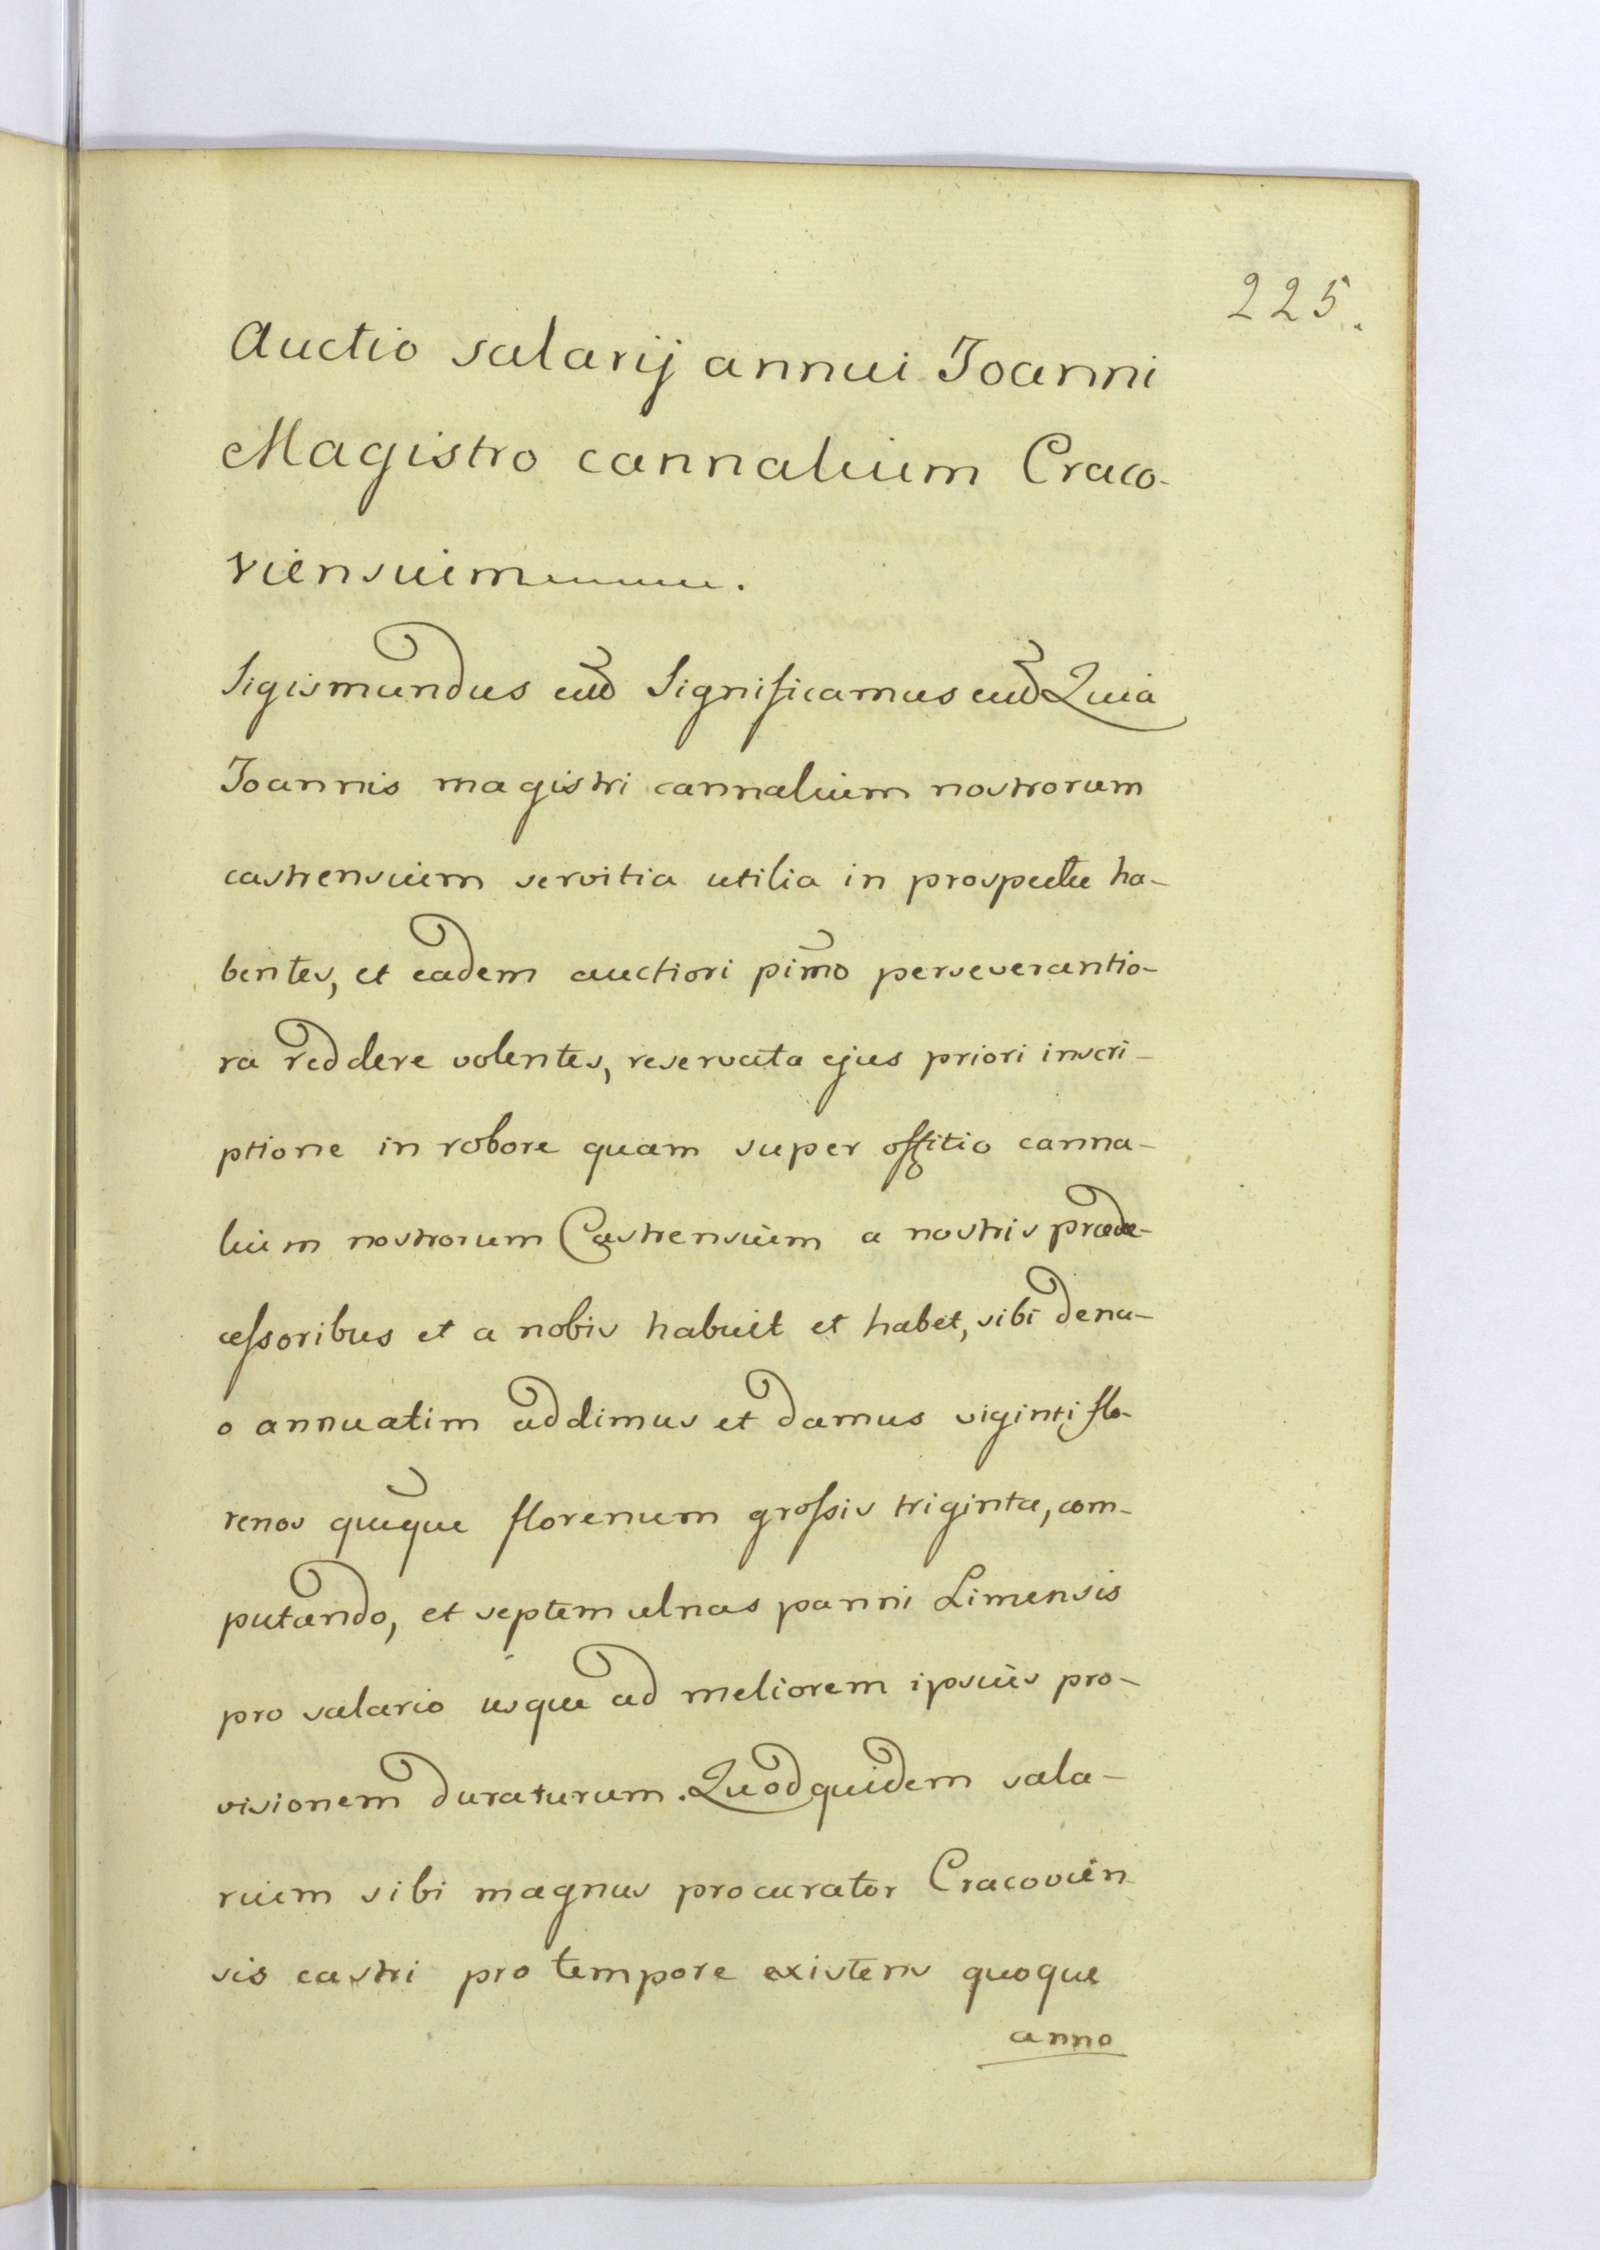 225.
Auctio salarij annui Joanni
Magistro cannalium Craco-
viensium.
Sigismundus Significamus Quia
Joannis magistri cannalium nostrorum
castrensium servitia utilia in prospectu ha-
bentes, et eadem auctiori pimo perseverantio-
ra reddere volentes, reservata ejus priori inscri-
ptione in robore quam super offitio canna-
lium nostrorum Castrensium a nostris præde-
cessoribus et a nobis habuit et habet, sibi denu-
o annuatim addimus et damus viginti flo-
renos queque florenum grossis triginta, com-
putando, et septem ulnas panni Limensis
pro salario usque ad meliorem ipsius pro-
visionem duraturum. Quodquidem sala-
rium sibi magnus procurator Cracovien
sis castri pro tempore existens quoque
anno